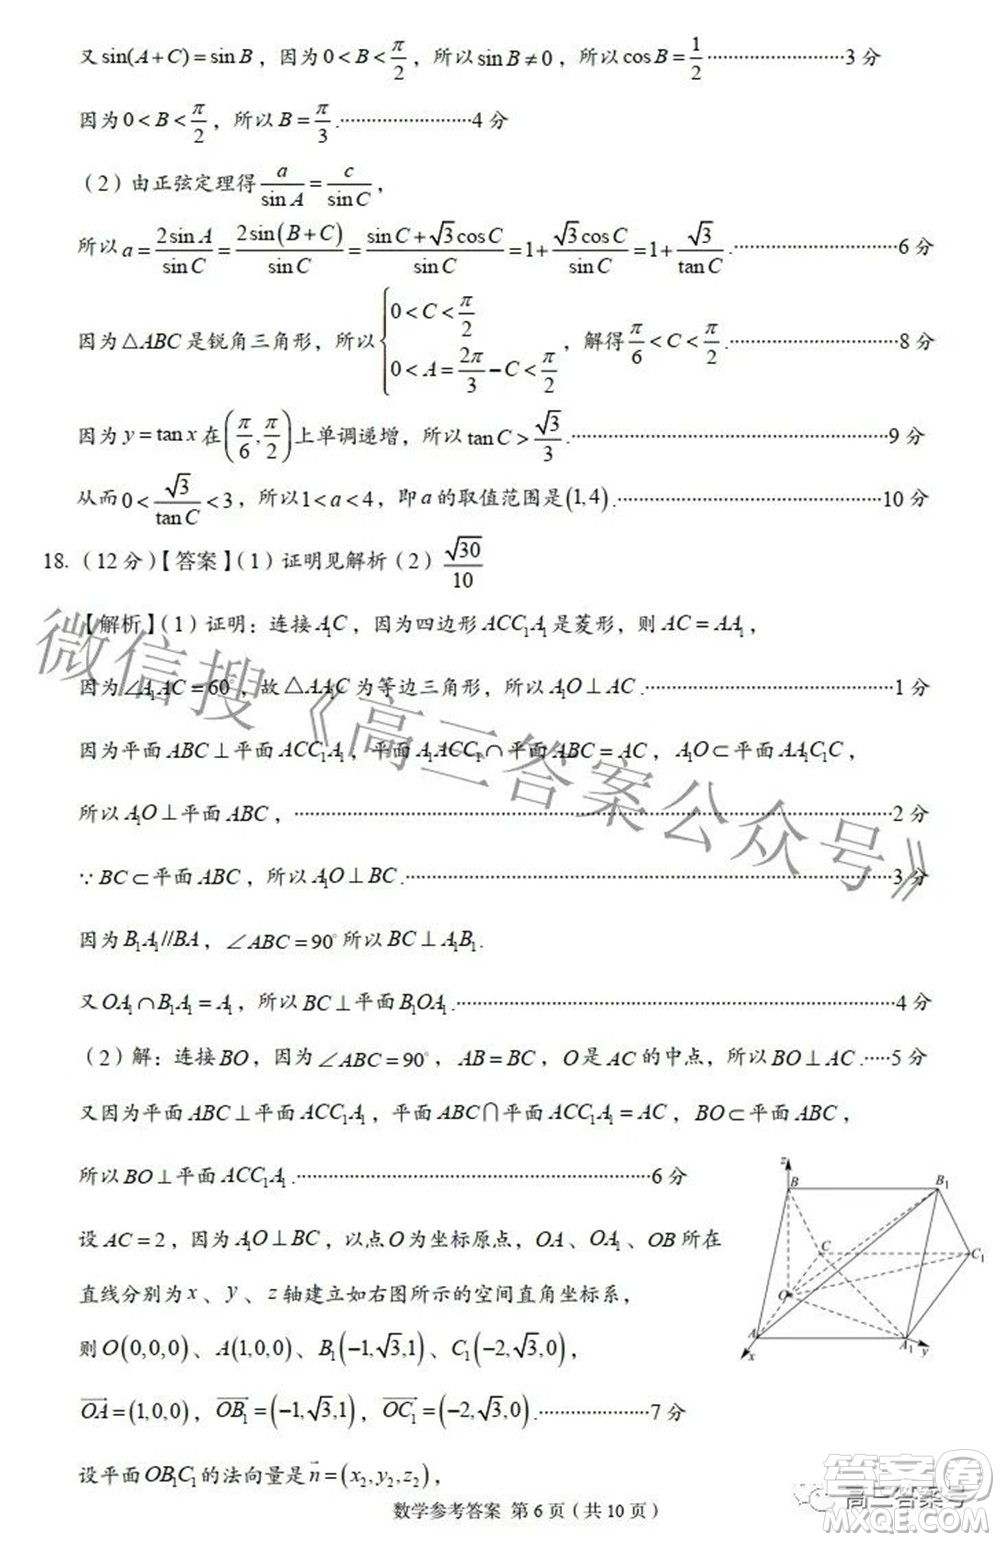 又 sin(A+C)=sinB，因为 0<B<π/2，所以 sinB≠0，所以 cosB=1/2 ························3 分
因为 0<B<π/2，所以 B=π/3.······················4 分
（2）由正弦定理得 a/sinA=c/sinC，
所以 a=2sinA/sinC=2sin(B+C)/sinC=(sinC+√3cosC)/sinC=1+√3cosC/sinC=1+√3/tanC.····························6 分
因为△ABC 是锐角三角形，所以 {0<C<π/2, 0<A=2π/3−C<π/2，解得 π/6<C<π/2.························8 分
因为 y=tanx 在(π/6,π/2)上单调递增，所以 tanC>√3/3.······················································9 分
从而 0<√3/tanC<3，所以 1<a<4，即 a 的取值范围是(1,4).·············································10 分
18.（12 分）【答案】（1）证明见解析（2）√30/10
【解析】（1）证明：连接 A₁C，因为四边形 ACC₁A₁ 是菱形，则 AC=AA₁，
因为∠A₁AC=60°，故△AA₁C 为等边三角形，所以 A₁O⊥AC.············································1 分
因为平面 ABC⊥平面 ACC₁A₁，平面 A₁ACC₁∩平面 ABC=AC，A₁O⊂平面 AA₁C₁C，
所以 A₁O⊥平面 ABC，···········································································2 分
∵BC⊂平面 ABC，所以 A₁O⊥BC.···················································································3 分
因为 B₁A₁//BA，∠ABC=90°所以 BC⊥A₁B₁.
又 OA₁∩B₁A₁=A₁，所以 BC⊥平面 B₁OA₁.···········································································4 分
（2）解：连接 BO，因为∠ABC=90°，AB=BC，O 是 AC 的中点，所以 BO⊥AC.·····5 分
又因为平面 ABC⊥平面 ACC₁A₁，平面 ABC∩平面 ACC₁A₁=AC，BO⊂平面 ABC，
所以 BO⊥平面 ACC₁A₁.·······························································6 分
设 AC=2，因为 A₁O⊥BC，以点 O 为坐标原点，OA、OA₁、OB 所在
直线分别为 x、y、z 轴建立如右图所示的空间直角坐标系，
则 O(0,0,0)、A(1,0,0)、B₁(−1,√3,1)、C₁(−2,√3,0)，
OA→=(1,0,0)，OB₁→=(−1,√3,1)，OC₁→=(−2,√3,0).····················7 分
设平面 OB₁C₁ 的法向量是 n→=(x₂,y₂,z₂)，
z
B
B₁
C
C₁
O
A
A₁
x
y
数学参考答案 第 6 页（共 10 页）
微信搜《高三答案公众号》
高三答案号
答案圈
MXQE.COM